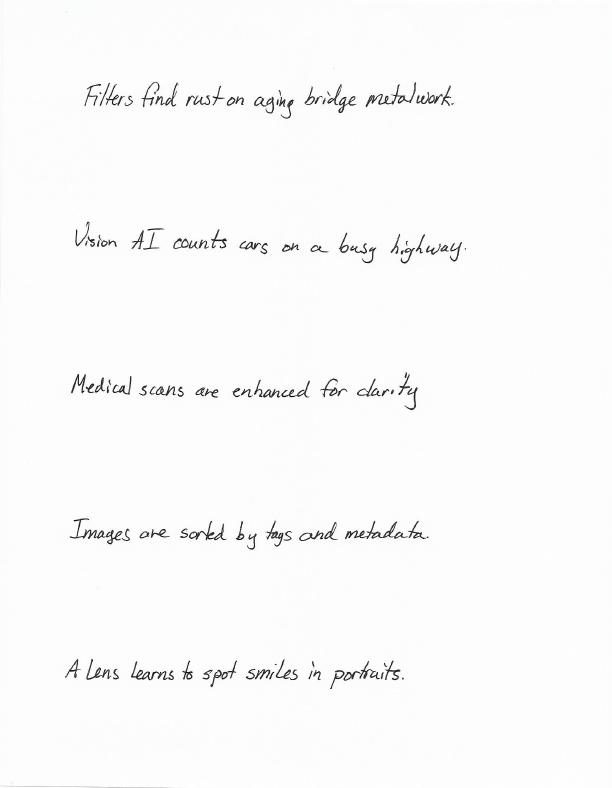 Filters find rust on aging bridge metalwork.
Vision AI counts cars on a busy highway.
Medical scans are enhanced for clarity
Images are sorted by tags and metadata.
A Lens learns to spot smiles in portraits.